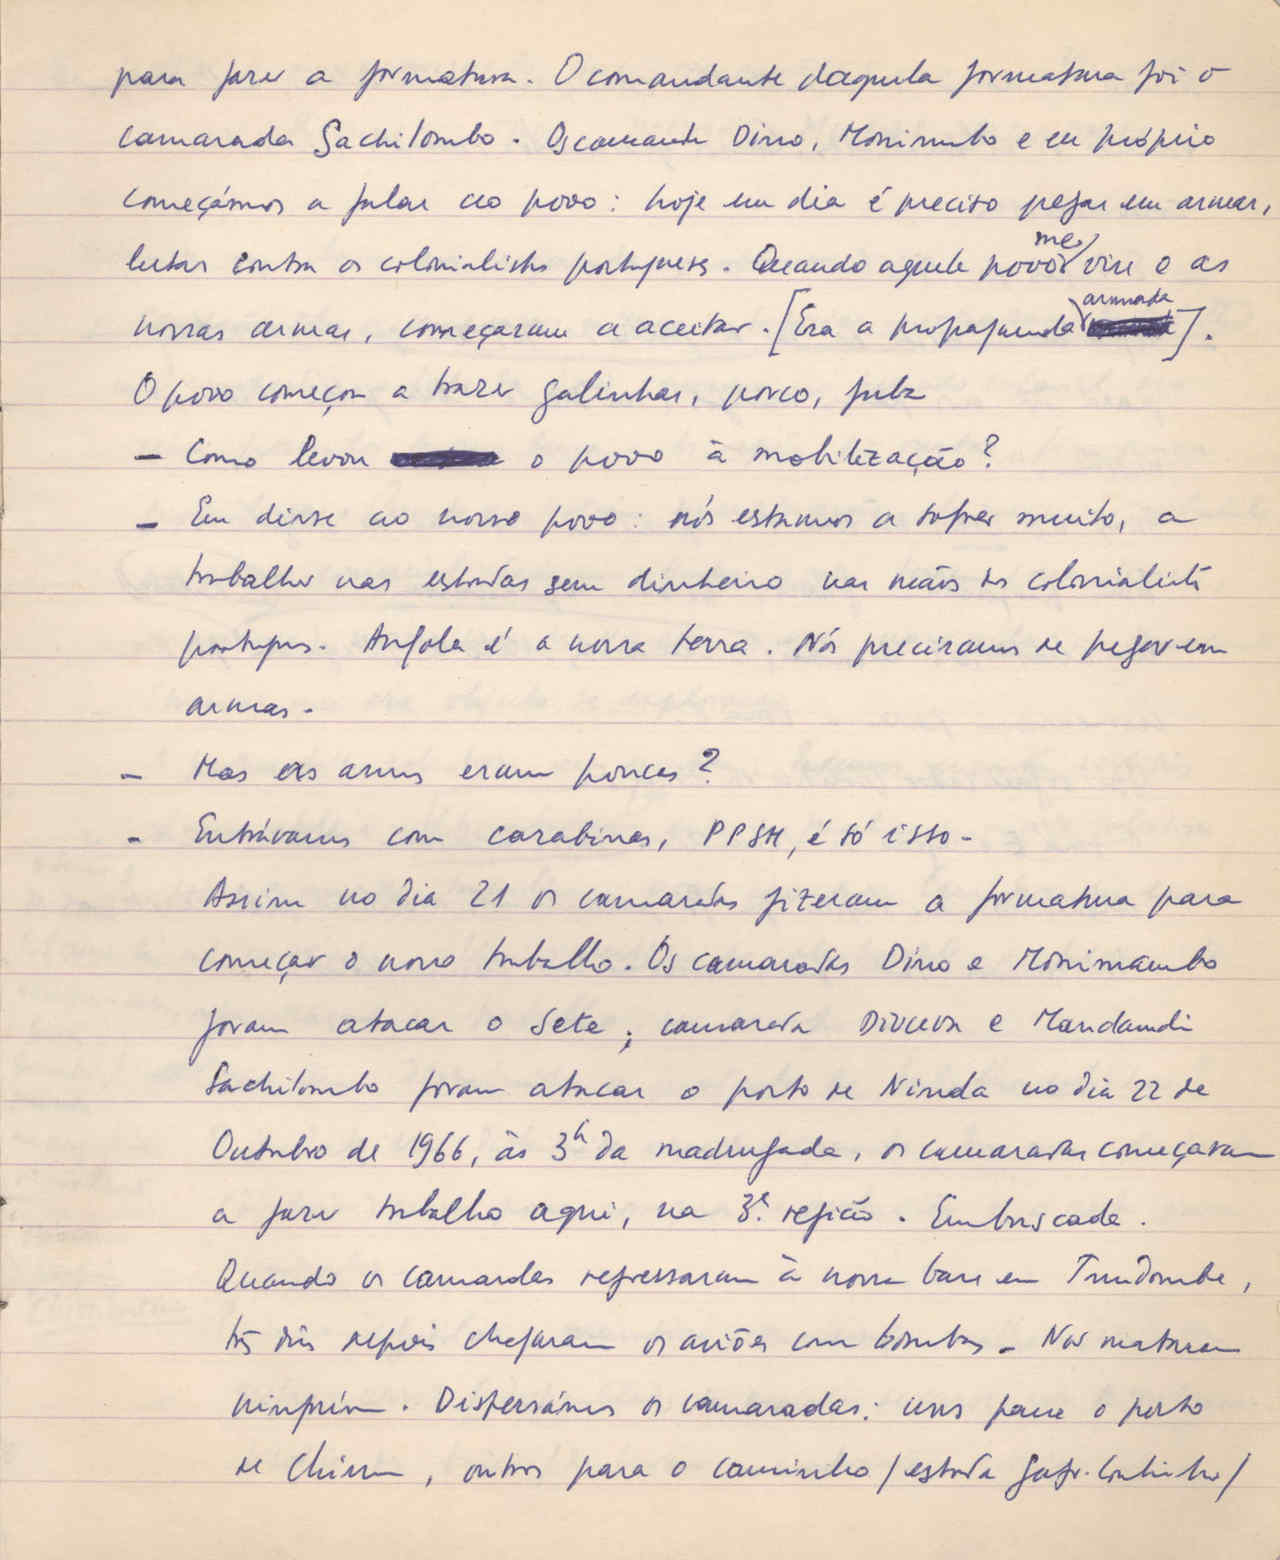 para fazer a formatura. O comandante daquela formatura foi o
camarada Sachilombo. Os camarada Dino, Monimambo e eu próprio
começámos a falar ao povo: hoje em dia é preciso pegar em armas,
lutar contra os colonialistas portugueses. Quando aquele povo me viu e as
nossas armas, começaram a aceitar. [Era a propaganda armada].
O povo começou a trazer galinhas, porco, fuba
- Como levou o povo à mobilização?
- Eu disse ao nosso povo: nós estamos a sofrer muito, a
trabalhar nas estradas sem dinheiro nas mãos dos colonialistas
portugueses. Angola é a nossa terra. Nós precisamos de pegar em
armas.
- Mas as armas eram poucas?
- Entrávamos com carabinas, PPSH, é só isso -
Assim no dia 21 os camaradas fizeram a formatura para
começar o novo trabalho. Os camaradas Dino e Monimambo
foram atacar o Sete; camarada e
Sachilombo foram atacar o posto de Ninda no dia 22 de
Outubro de 1966, às 3h da madrugada, os camaradas começaram
a fazer trabalho aqui, na 3ª região. Emboscada.
Quando os camaradas regressaram à nossa base em
três dias depois chegaram os aviões com bombas - Não mataram
ninguém. Dispersámos os camaradas: uns para o posto
de Chiume, outros para o caminho /estrada Gago-Coutinho/